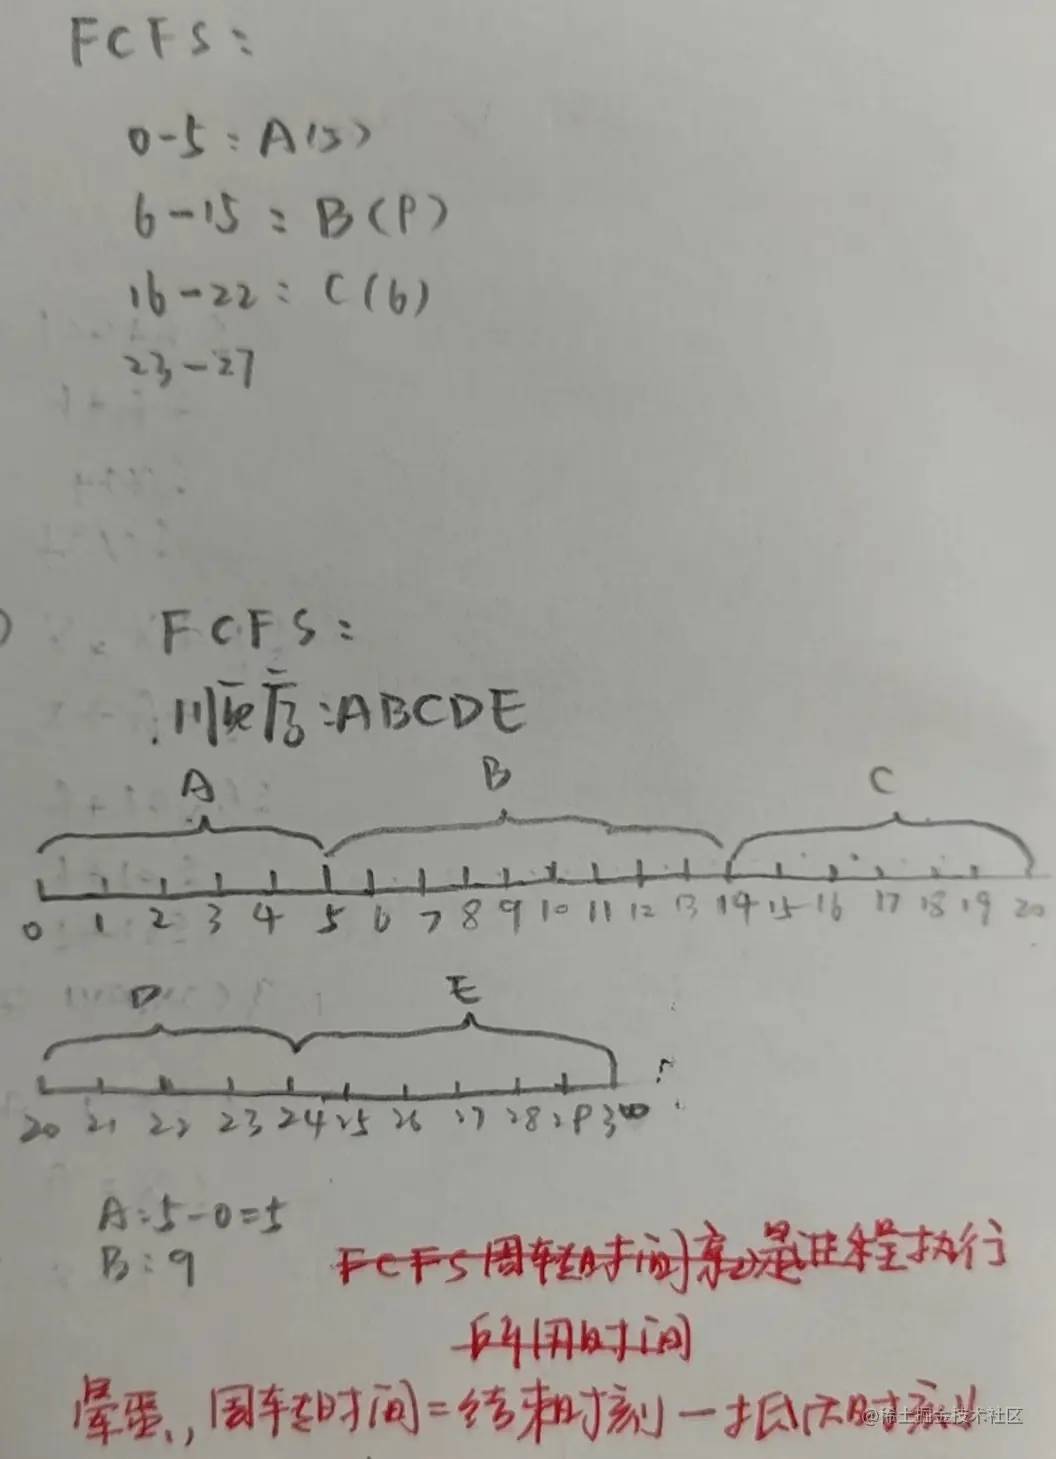 FCFS:
0-5:A(5)
6-15:B(9)
16-22:C(6)
23-27
FCFS:
顺序:ABCDE
A B C
0 1 2 3 4 5 6 7 8 9 10 11 12 13 14 15 16 17 18 19 20
D E
20 21 22 23 24 25 26 27 28 29 30
A:5-0=5
B:9
FCFS周转时间就是进程执行
所用时间
晕蛋,周转时间=结束时刻-抵达时刻
@稀土掘金技术社区